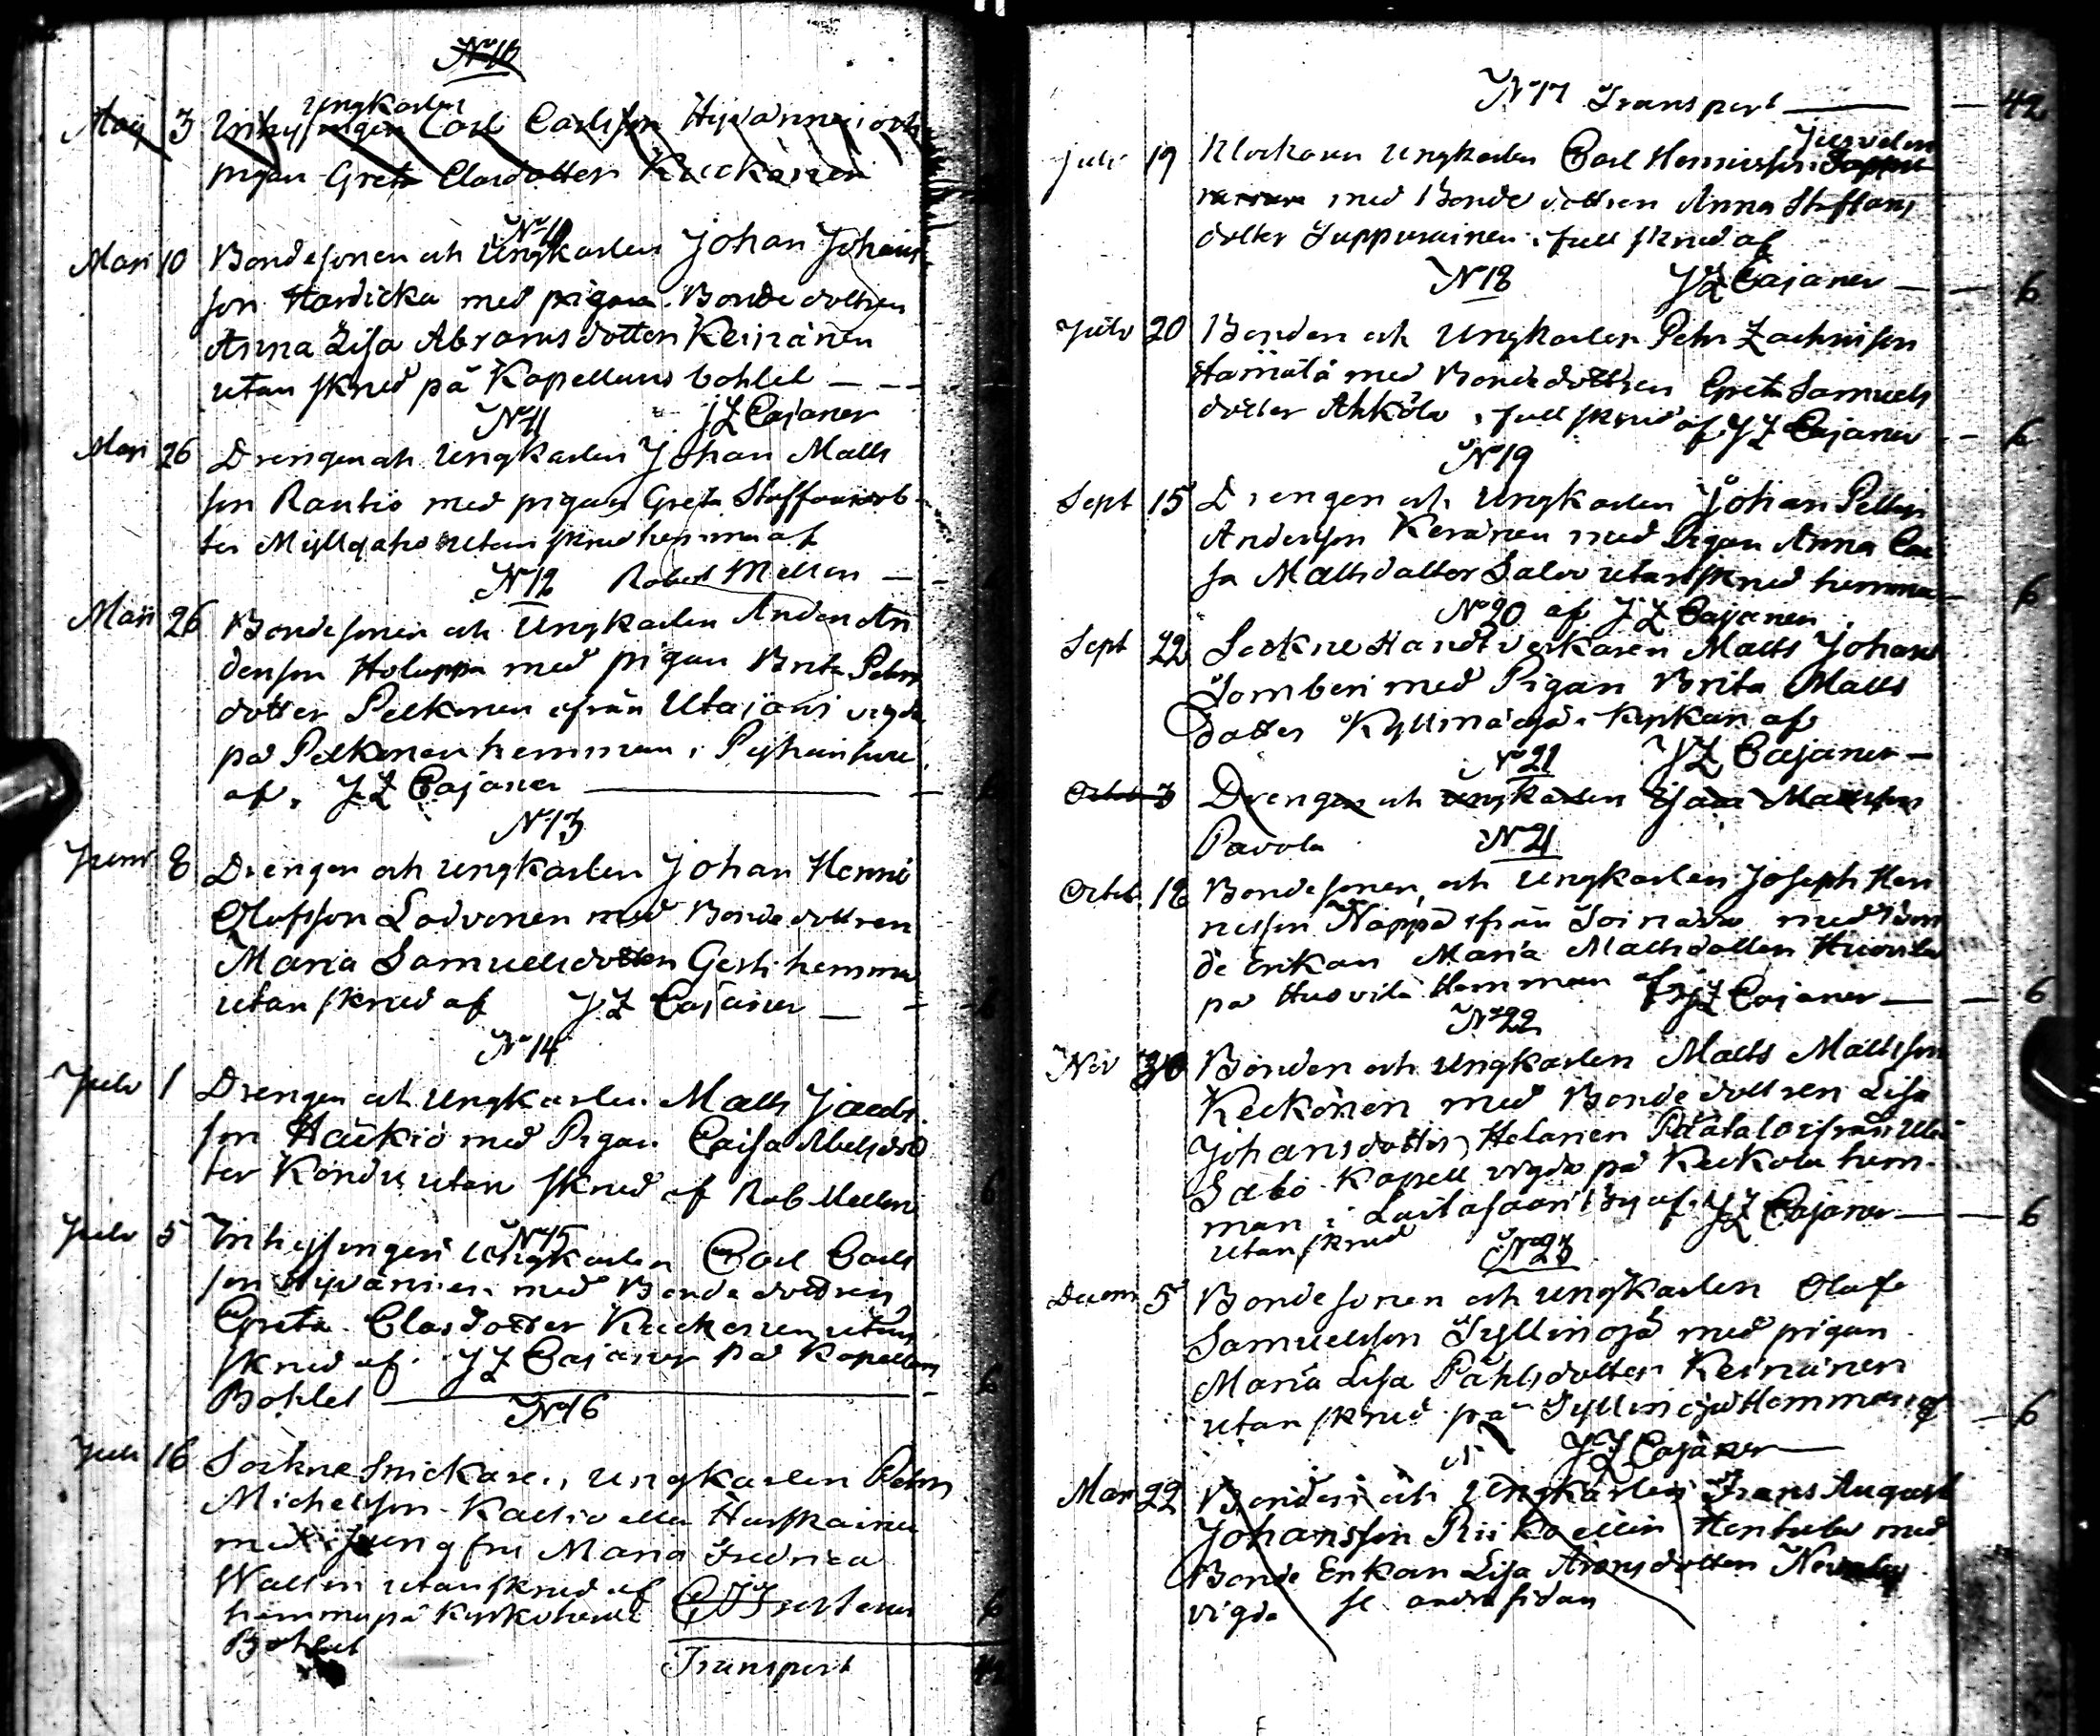 No 10
Maij 3 Inhysingen ungkarlen Carl Carlsson Hyvärinen och
pigan Greta Clasdotter Keckonen
No 10
Maii 10 Bondesonen och Ungkarlen Johan Johans
son Hardicka med pigan Bondedottren
Anna Lisa Abramsdotter Keinänen
utan skrud på Kapellans bohlet
No 11 JZ Cajaner
Maii 26 Drengen och Ungkarlen Johan Matts
son Rautio med pigan Greta Staffansdot
ter Myllyaho utan skrud hemma af
No 12 Robert Mellen
Maii 26 Bondesonen och Ungkarlen Anders An
dersson Holappa med pigan Brita Pehrs
dotter Pelkonen ifrån Utajärvi vigda
på Pelkonen hemman i
af JZ Cajaner
No 13
Junii 8 Drengen och Ungkarlen Johan Henric
Olofsson Lodvonen med Bondedottren
Maria Samuelsdotter Gesti hemma
utan skrud af JZ Cajaner
No 14
Julii 1 Drengen och Ungkarlen Matts Jacobs
son Häikiö med Pigan Caisa Abelsdot
ter Kondu utan skrud af Rob Mellen 6
No 15
Julii 5 Inhysingen Ungkarlen Carl Carls
son Hyvärinen med Bondedottren
Greta Clasdotter Keckonen utan
skrud af JZ Cajaner på Kapellans 6
Bohlet
No 16
Julii 16 Sockne Snickaren, Ungkarlen Petter
Michelsson Kaltio eller Hurskainen
med Jungfru Maria Fredrica
Wallin utan skrud af
hemma på Kyrkoherde 6
Bohlet
Transport 42
No 17 Transport 42
Julii 19 Klockaren Ungkarlen Carl Henricsson Juvelin
med Bondedottren Anna Staffans
dotter Juppurainen i full skrud af
No 18 JZ Cajaner 6
Julii 20 Bonden och Ungkarlen Pehr Zachrisson
Hämälä med Bondedottren Greta Samuels
dotter Ahkola i full skrud af JZ Cajaner 6
No 19
Sept 15 Drengen och Ungkarlen Johan Petter
Andersson Keränen med Pigan Anna Cai
sa Mattsdotter Salvo utan skrud hemma 6
No 20 af JZ Cajaner
Sept 22 Sockne Handtverkaren Matts Johans
Tomberi med Pigan Brita Matts
dotter Kyllmäoja i Kyrkan af
No 21 JZ Cajaner
Octob 3 Drengen och Ungkarlen Isaac Mattsson
Pavola No 21
Octob 12 Bondesonen och Ungkarlen Joseph Hen
ricsson Näppä ifrån Soinävä med
de Enkan Maria Mattsdotter Huovila
på Huovila Hemman af JZ Cajaner 6
No 22
Nov 30 Bonden och Ungkarlen Matts Mattsson
Keckonen med Bondedottren Lisa
Johansdotter Holanen Päätalo ifrån Uleå
Sälö Kapell vigda på Keckola hem
man i Laitasaari by af JZ Cajaner 6
utan skrud No 23
Decem 5 Bondesonen och Ungkarlen Olof
Samuelsson Syllinoja med pigan
Maria Lisa Påhlsdotter Keinänen
utan skrud på Syllinoja Hemman af 6
JZ Cajaner
Mars 22 Bonden och Ungkarlen Frans August
Johansson Riiko eller Hentula med
Bonde Enkan Lisa Aronsdotter
vigda se andra sidan